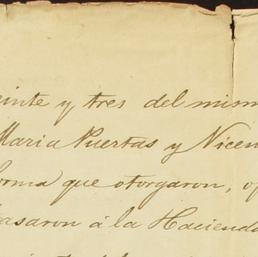 einte y tres del mism
Maria Puertas y Vicen
orma que otorgaron, o
basaron á la Hacienda